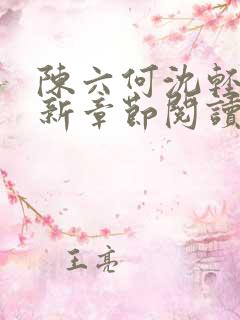 陳六何沈輕
新章節閱讀
王亮